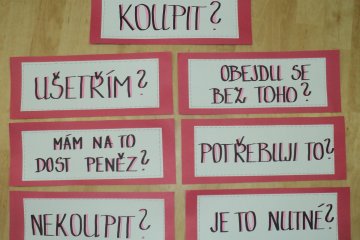 KOUPIT?
UŠETŘÍM?
OBEJDU SE
BEZ TOHO?
MÁM NA TO
DOST PENĚZ?
POTŘEBUJI TO?
NEKOUPIT?
JE TO NUTNÉ?